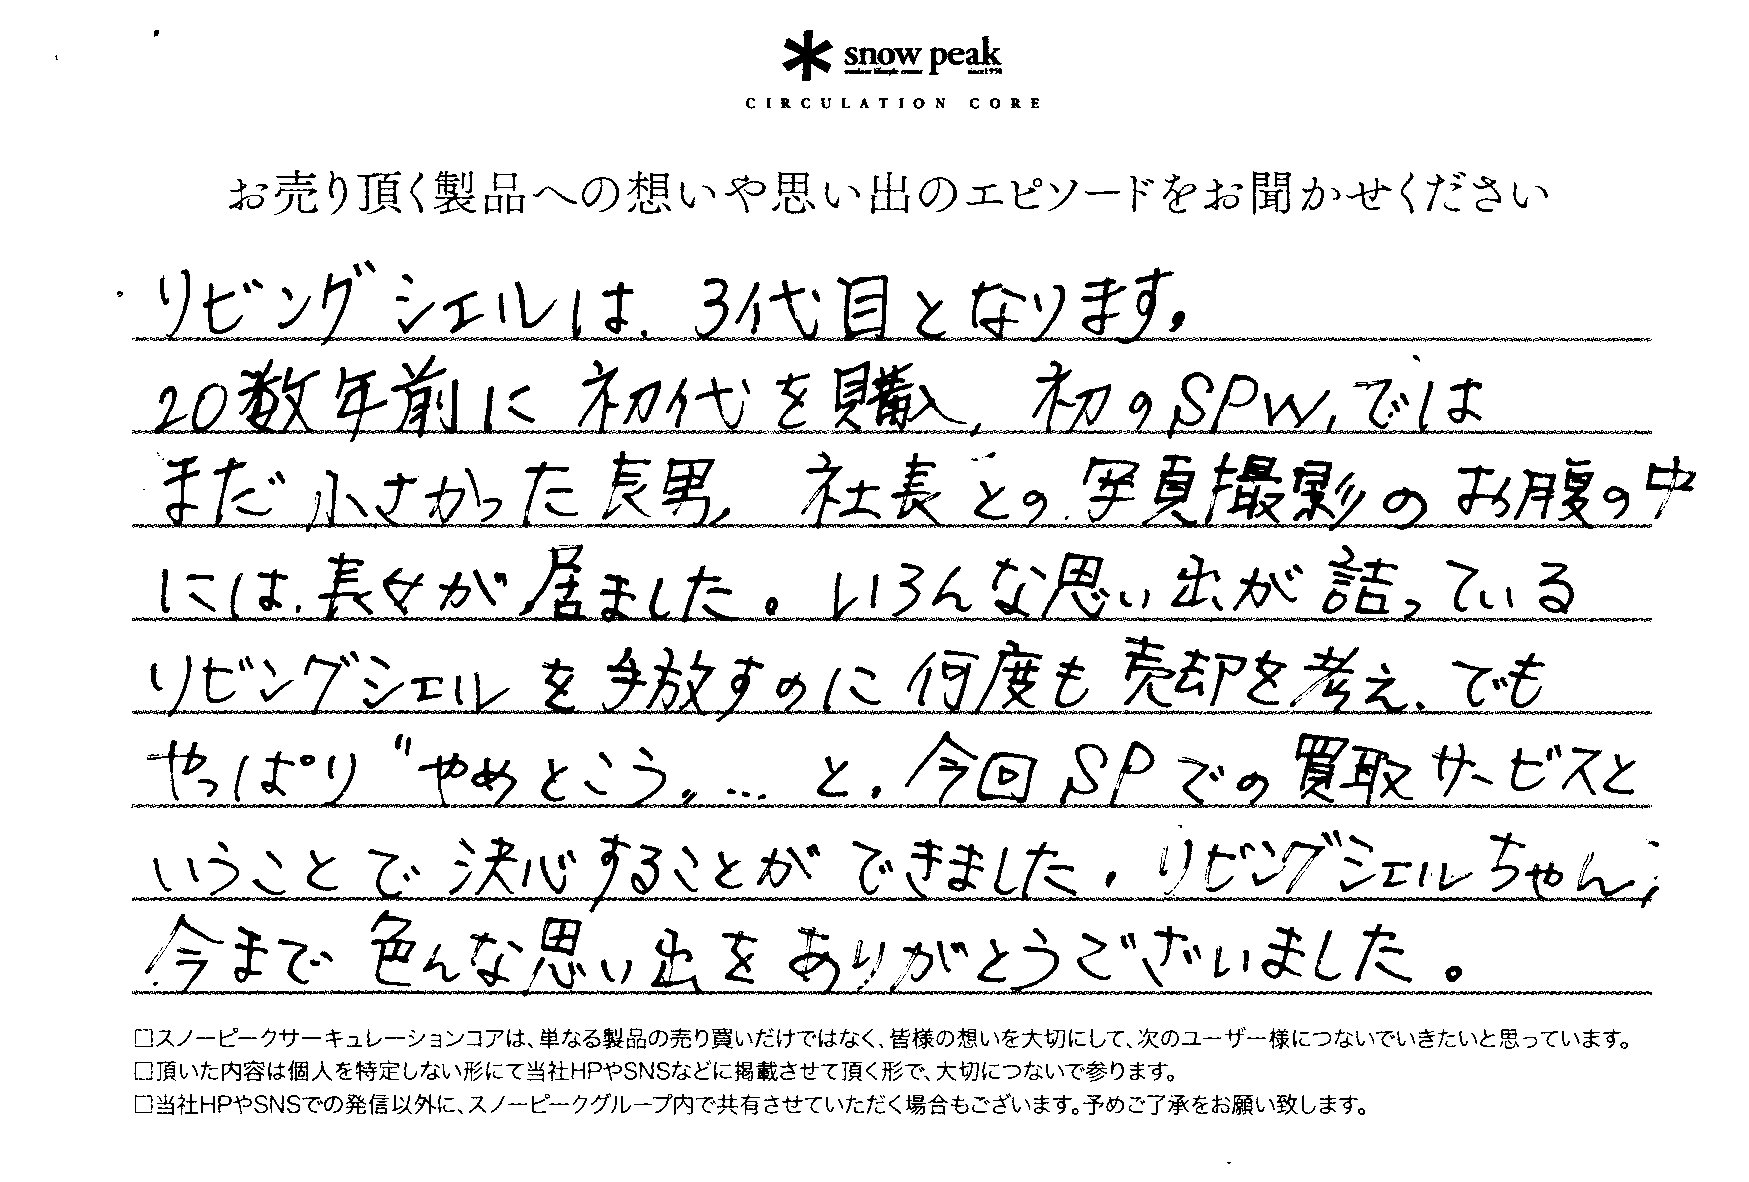 snow peak
CIRCULATION CORE
お売り頂く製品への想いや思い出のエピソードをお聞かせください
リビングシェルは、3代目となります。
20数年前に初代を購入、初のSPW、では
まだ小さかった長男、社長との写真撮影のお腹の中
には、長女が居ました。いろんな思い出が詰っている
リビングシェルを手放すのに何度も売却を考え、でも
やっぱり〝やめとこう〟… と、今回SPでの買取サービスと
いうことで決心することができました。リビングシェルちゃん、
今まで色んな思い出をありがとうございました。
□スノーピークサーキュレーションコアは、単なる製品の売り買いだけではなく、皆様の想いを大切にして、次のユーザー様につないでいきたいと思っています。
□頂いた内容は個人を特定しない形にて当社HPやSNSなどに掲載させて頂く形で、大切につないで参ります。
□当社HPやSNSでの発信以外に、スノーピークグループ内で共有させていただく場合もございます。予めご了承をお願い致します。